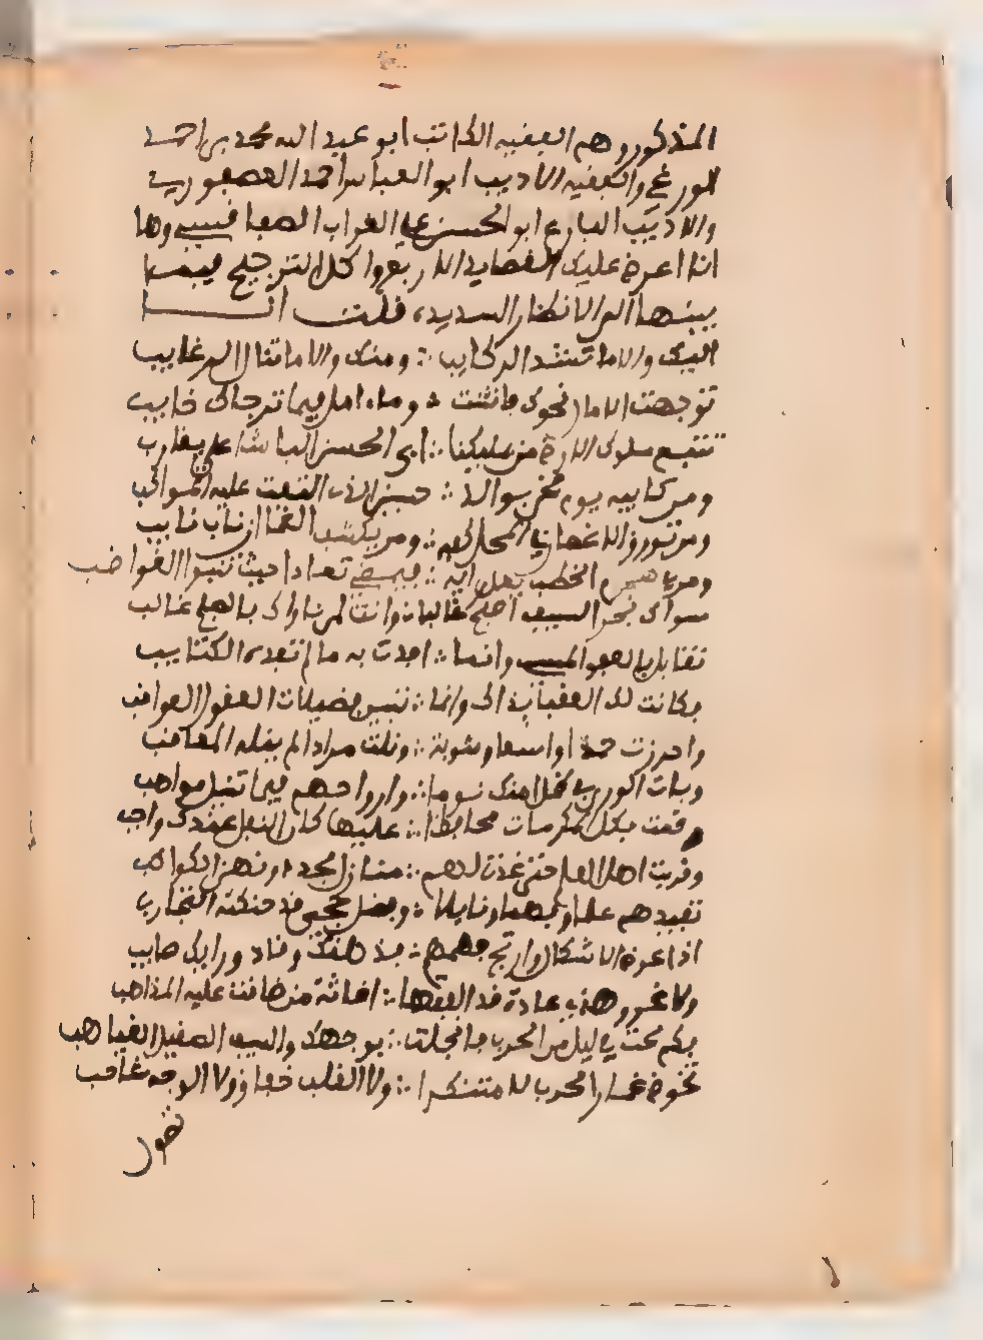 المذكور وهم الفقيه الكاتب ابو عبد الله محمد بن احمد
الورغي والفقيه الاديب ابو العباس احمد العصفوري
والاديب البارع ابو الحسن علي الغراب الصفاقسي وها
انا اعرض عليك القصايد الاربع واكل الترجيح فيما
بينها الى الانظار السديدة، فلت انا
اليك والا ما تشد الركايب ∴ ومنك والا ما تنال الرغايب
توجهت الامال نحوك فانثنت ∴ وما امل فيما ترجاك خايب
تتبع ملوك الارض من علي كبنا ∴ ابي الحسن الباشا علي يقارب
ومن كابيه يوم فخر بوالد ∴ حسين الذي التفت عليه المواكب
ومن تورق الاغصان في المحل كفه ∴ ومن يكشف الغما ان ناب نايب
ومن يهزم الخطب
سواك بحر السيف اصبح غالبا ∴ وانت لمن ناواك بالحلم غالب
تقابل بالعفو المسي وانما ∴ اخذت به ما لم تفده الكتايب
فكانت لك العقبى بذاك وانما ∴ تبين فضيلات العقول العواقب
واحرزت حمدا واسعا ومثوبة ∴ ونلت مرادا لم ينله المعاقب
وبات الورى في ظل امنك نوما ∴ وارواحهم فيما تنيل مواهب
وقمت بكل المكرمات محافظا ∴ عليها كان النفل عندك واجب
وقربت اهل العلم حتى غدت لهم ∴ منازل مجد دونهن الكواكب
تفيدهم علما وفهما ونايلا ∴ وفضل حجى قد حنكته التجارب
اذا عرض الاشكال وارتج فهمهم ∴ فذهنك وقاد ورايك صايب
ولا غرو هذي عادة قد الفتها ∴ اغاثة من ضاقت عليه المذاهب
فكم محت في ليل من الحرب فانجلت ∴ بوجهك والسيف الصقيل الغياهب
تخوض غمار الحرب لا متنكرا ∴ ولا القلب خفاق ولا الوجه شاحب